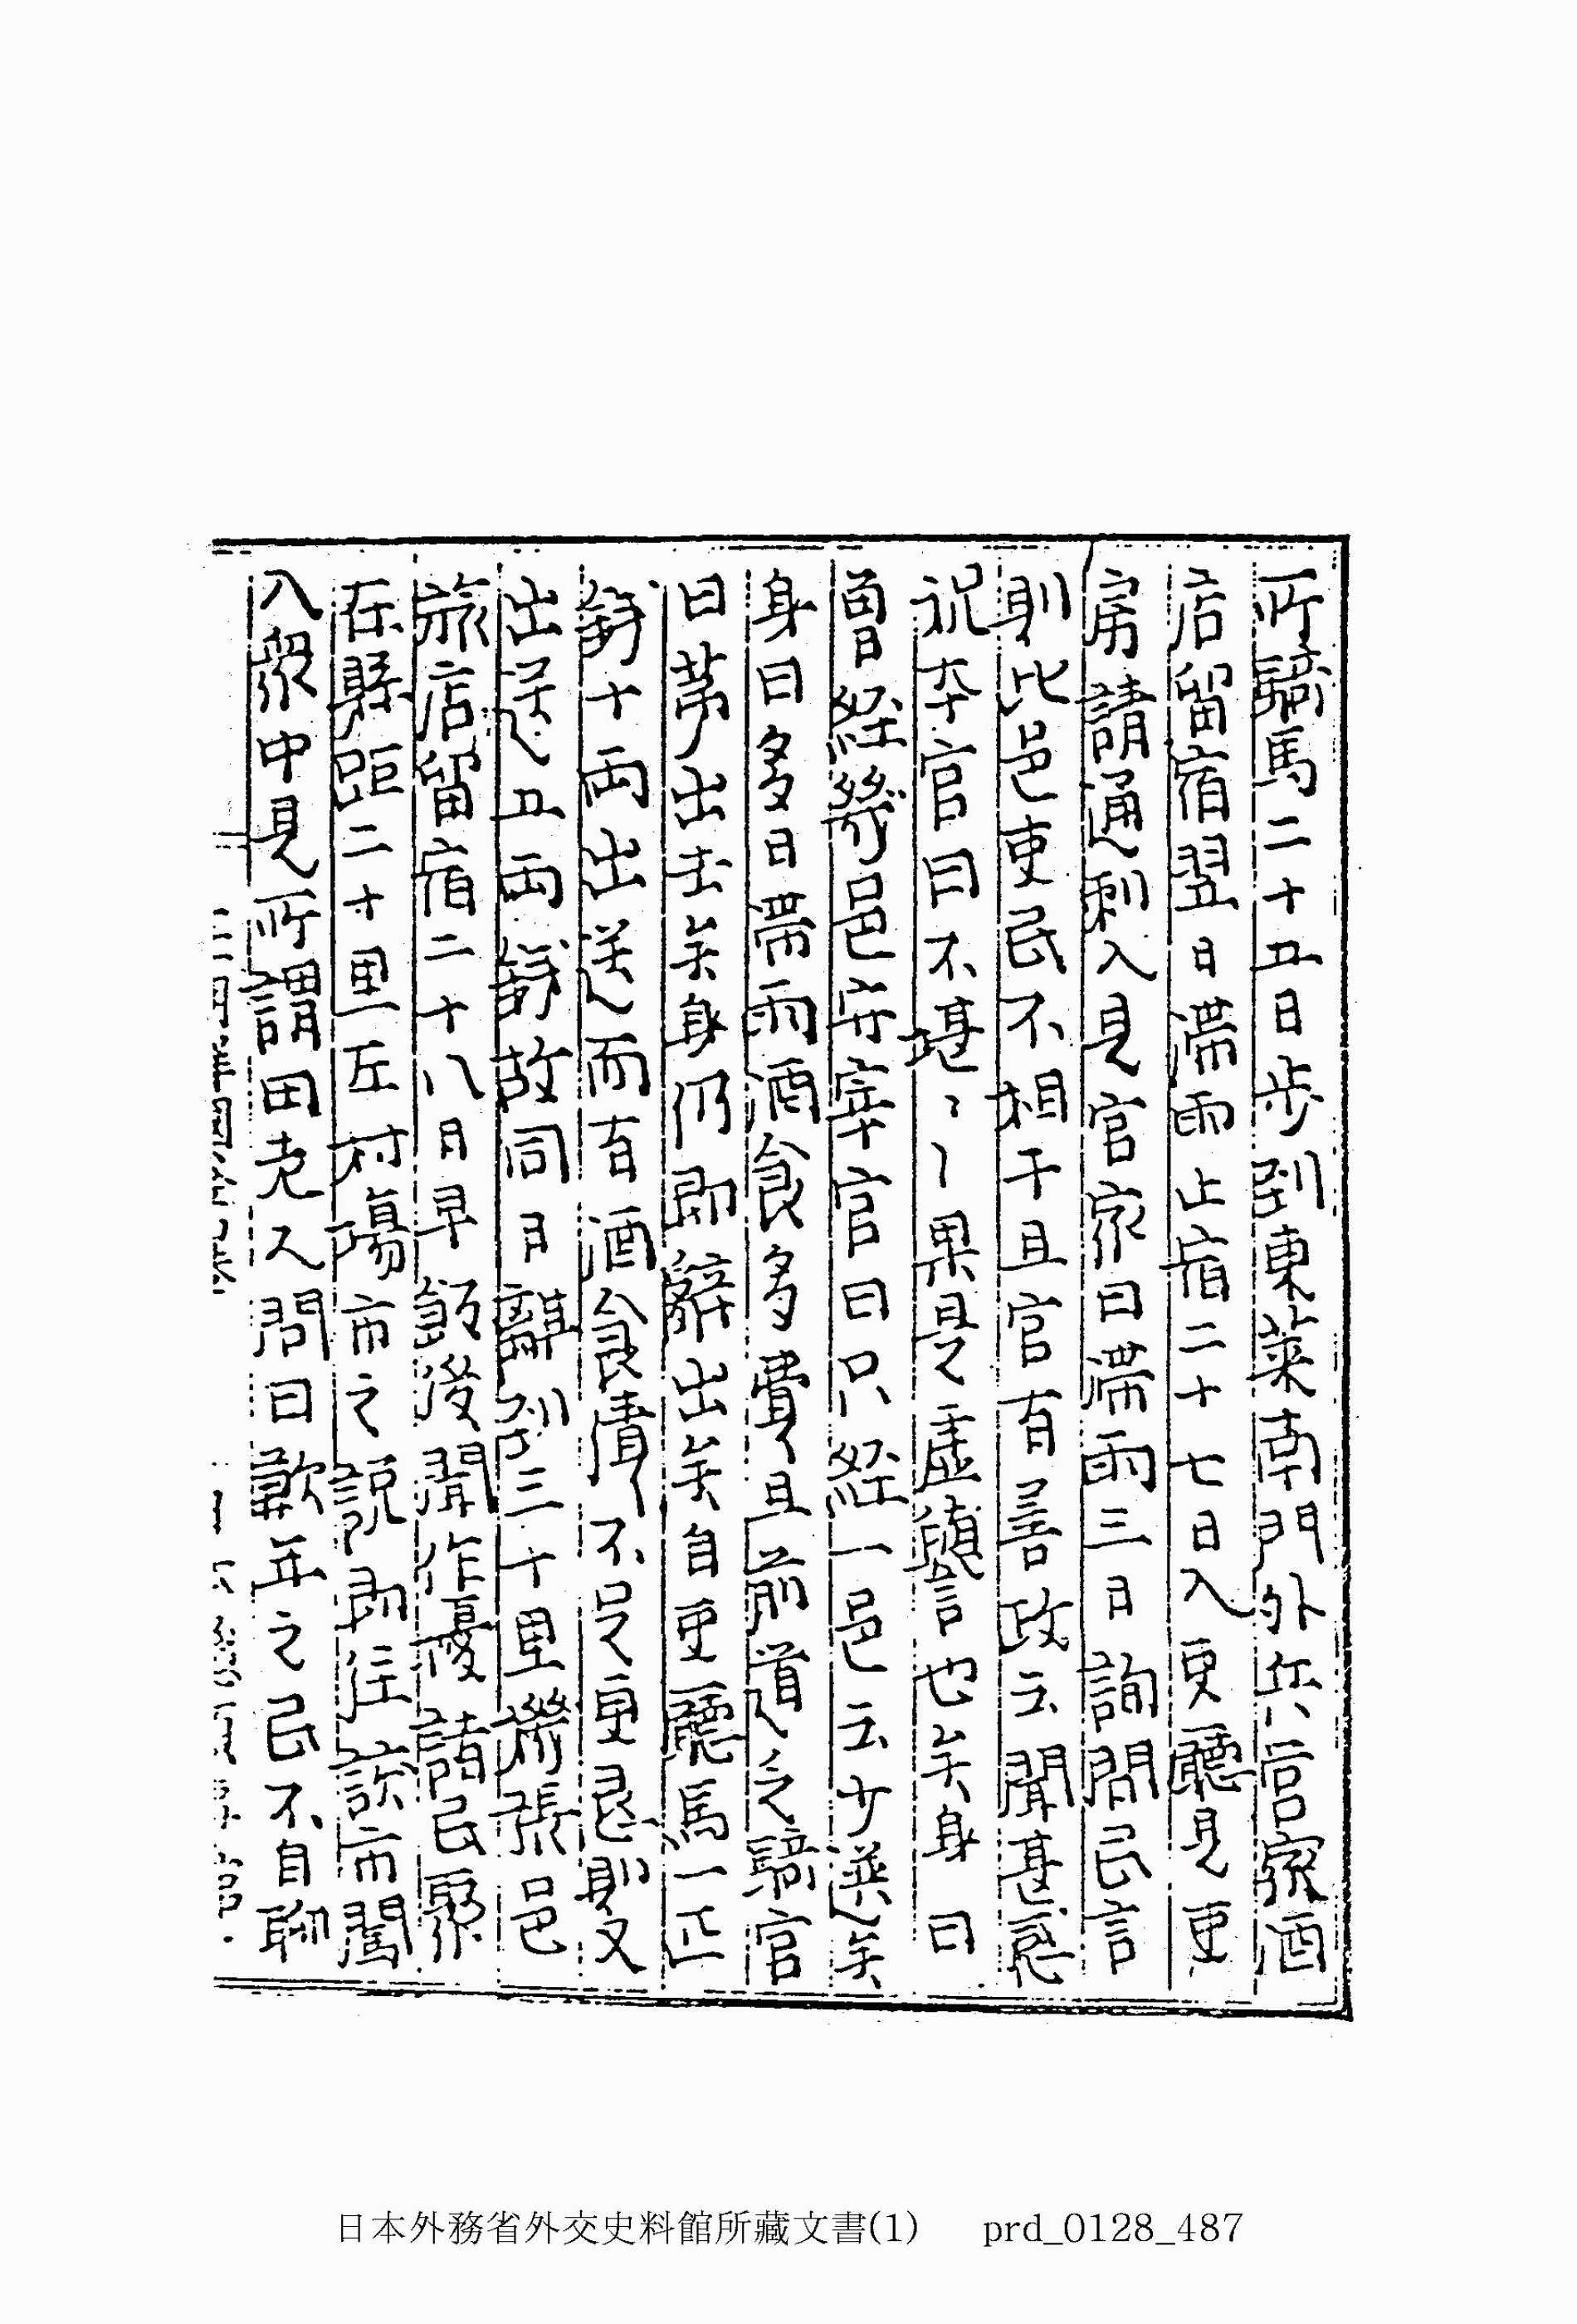 所騎馬二十五日步到東萊南門外兵官家酒
店留宿翌日滯雨止宿二十七日入吏廳見吏
房請通刺入見官家曰滯雨三日詢問民言
則此邑吏民不相干且官有善政云聞甚慰
祝本官曰不堪〻〻果是虛譽言也矣身曰
曾經幾邑守宰官曰只經一邑云少選矣
身曰多日滯雨酒食多費且前道乏騎官
曰苐出去矣身仍卽辭出矣自吏廳馬一匹
錢十兩出送而有酒食債不足更退則又
出送五兩錢故同日離到三十里機張邑
旅店留宿二十八日早飯後聞作擾諸民聚
在縣距二十里左村場市之說卽往該市闖
入衆中見所謂田老人問曰歉年之民不自聊
日本外務省外交史料館所藏文書(1) prd_0128_487